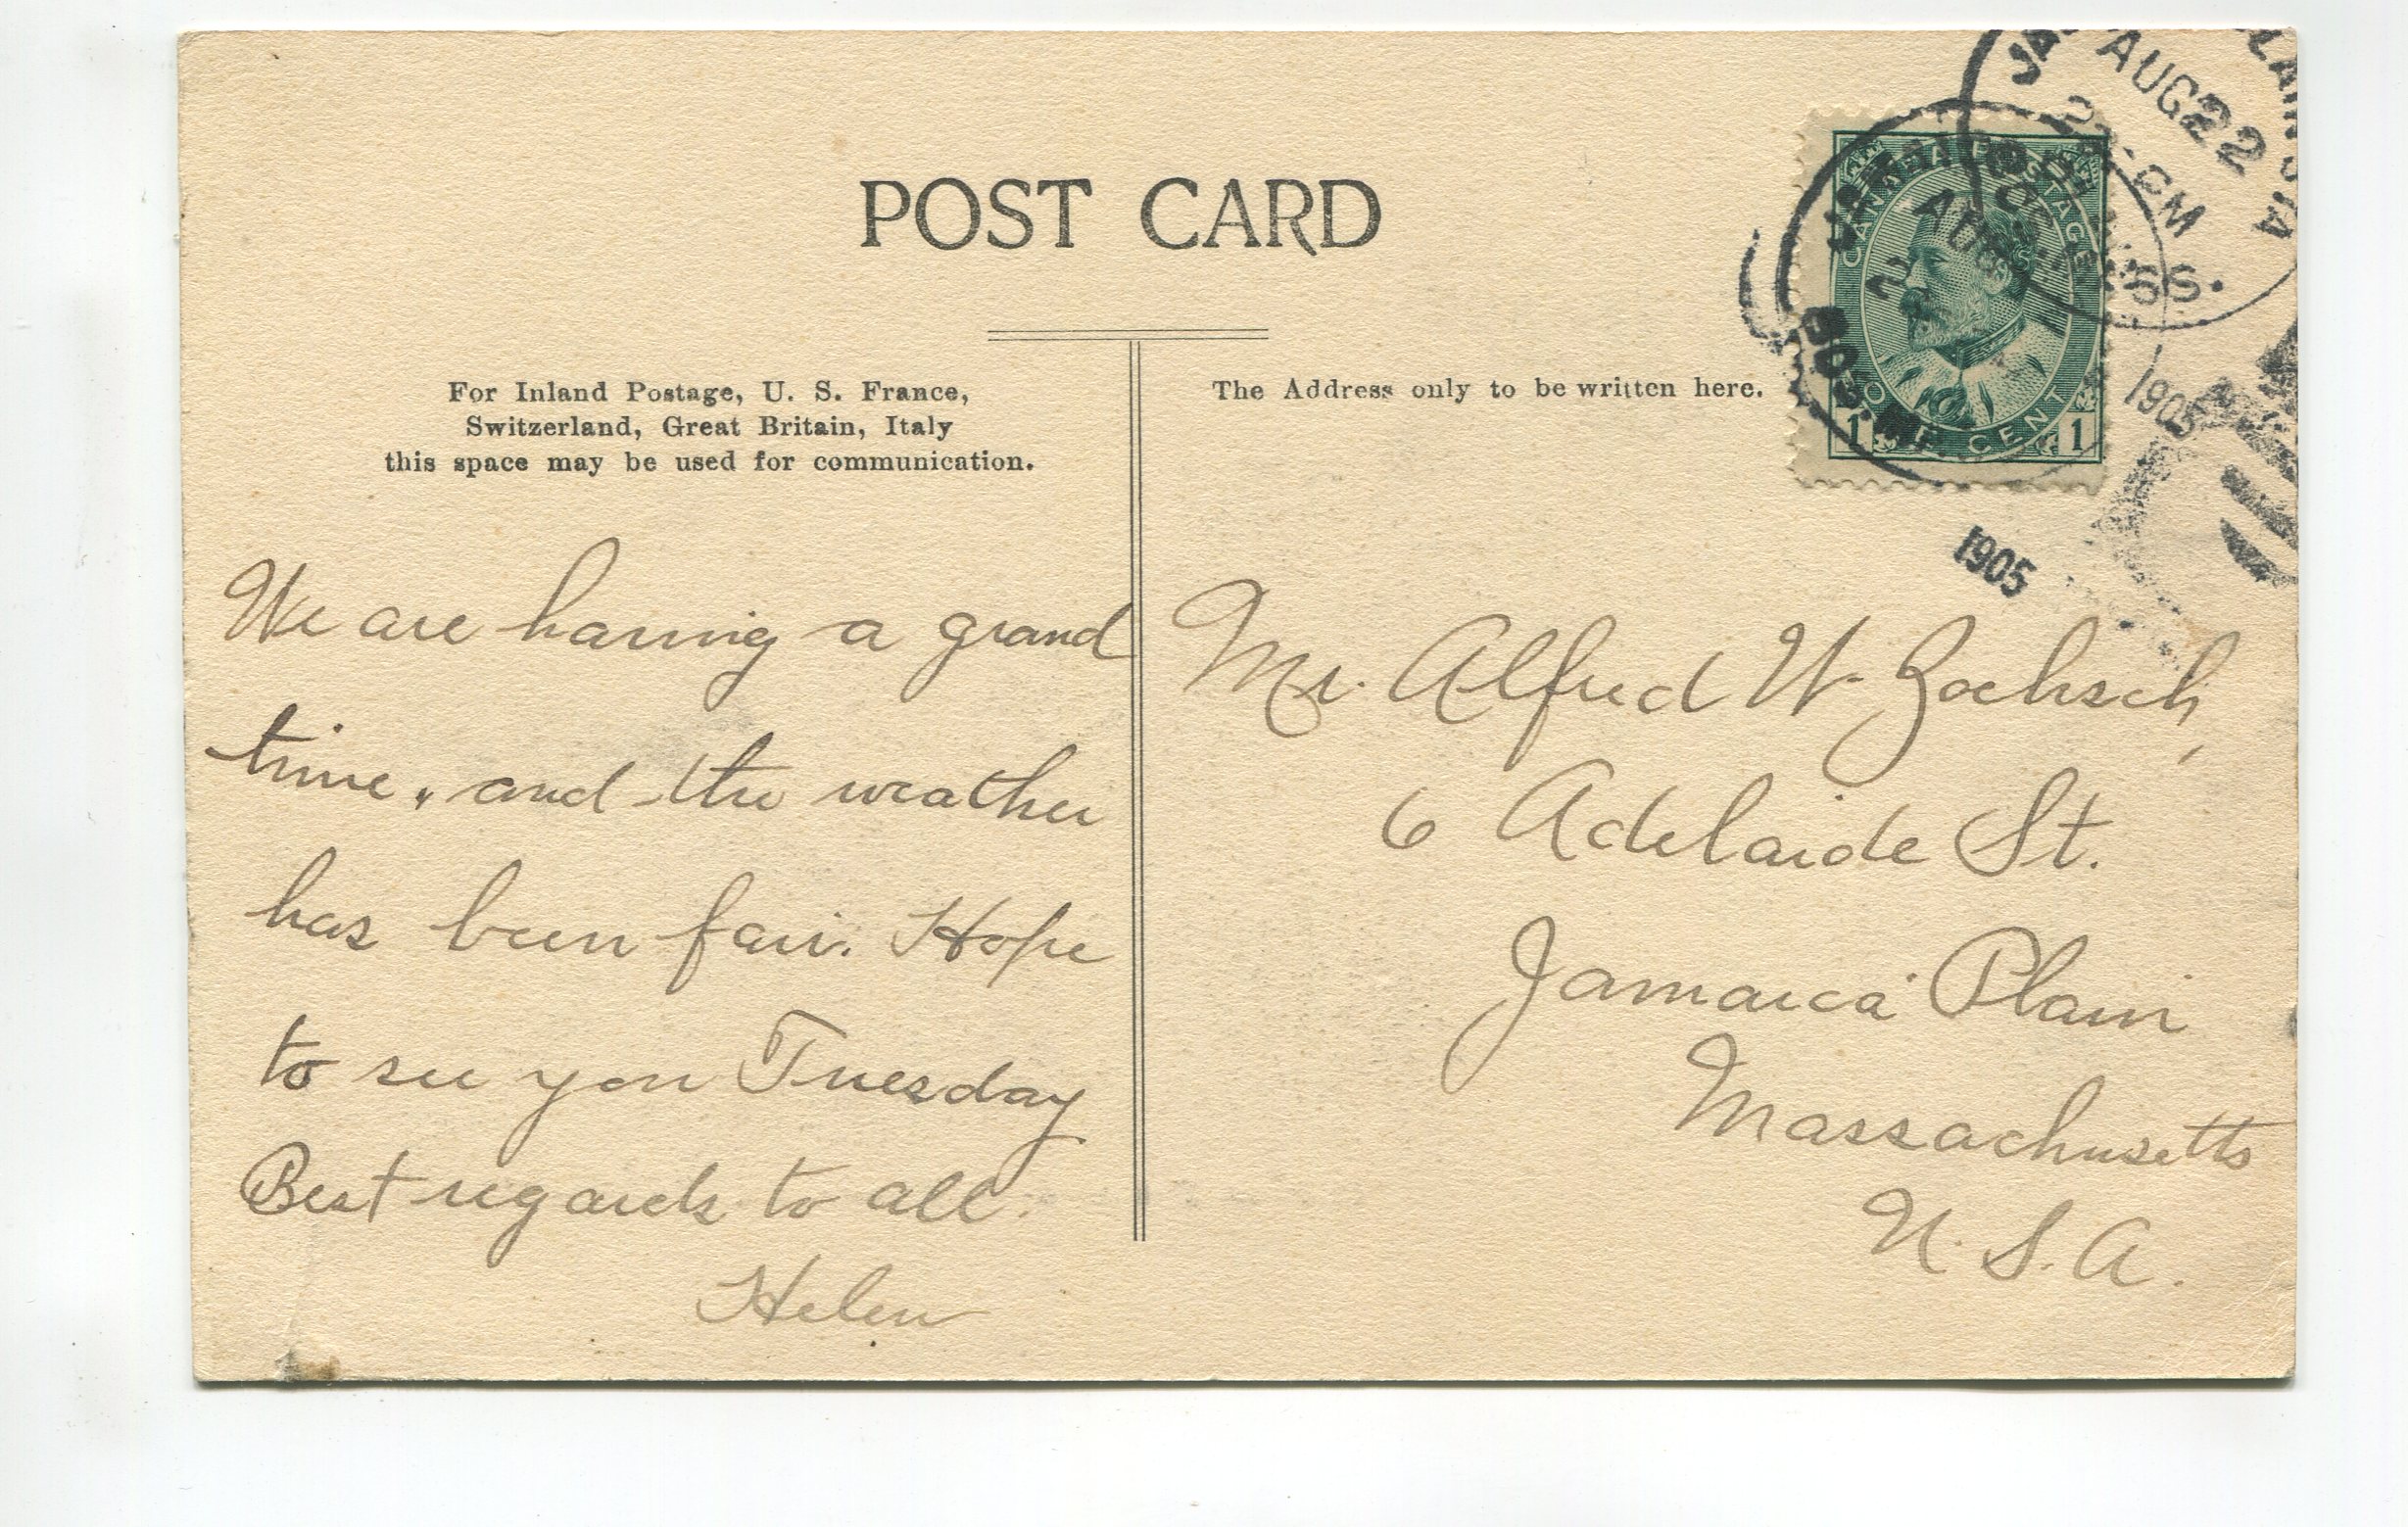 POST CARD
For Inland Postage, U. S. France,
Switzerland, Great Britain, Italy
this space may be used for communication.
The Address only to be written here.
CANADA POSTAGE
ONE CENT
1 1
AUG 22
2 PM
1905
1905
We are having a grand
time, and the weather
has been fair. Hope
to see you Tuesday
Best regards to all.
Helen
Mr. Alfred W.
6 Adelaide St.
Jamaica Plain
Massachusetts
U. S. A.